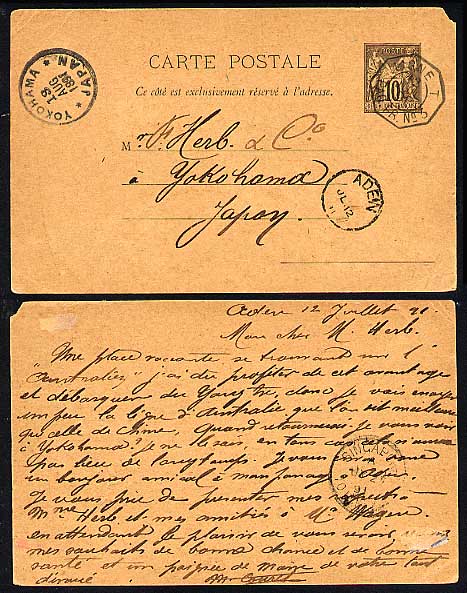 CARTE POSTALE
Ce côté est exclusivement réservé à l'adresse.
POSTES
10
YOKOHAMA
JAPAN
18
AUG
1891
Mr. F. Herb. & Co
à Yokohama
Japon.
ADEN
JL 12
Aden 12 Juillet 91.
Mon cher M. Herb.
Une place vacante se trouvant sur l'
"Australien" j'ai dû profiter de cet avantage
et débarquer du donc je vais essayer
un peu la ligne d'Australie que l'on dit meilleure
que celle de Chine. Quand retournerai-je vous voir
à Yokohama? je ne le sais, en tous cas
pas lieu de longtemps. Je vous
un bonjour amical à mon passage
Je vous prie de présenter mes respects à
Mme Herb et mes amitiés à Mr
en attendant le plaisir de vous revoir,
mes souhaits de bonne chance et de bonne
santé et une poignée de main de votre tout
dévoué
SINGAPORE